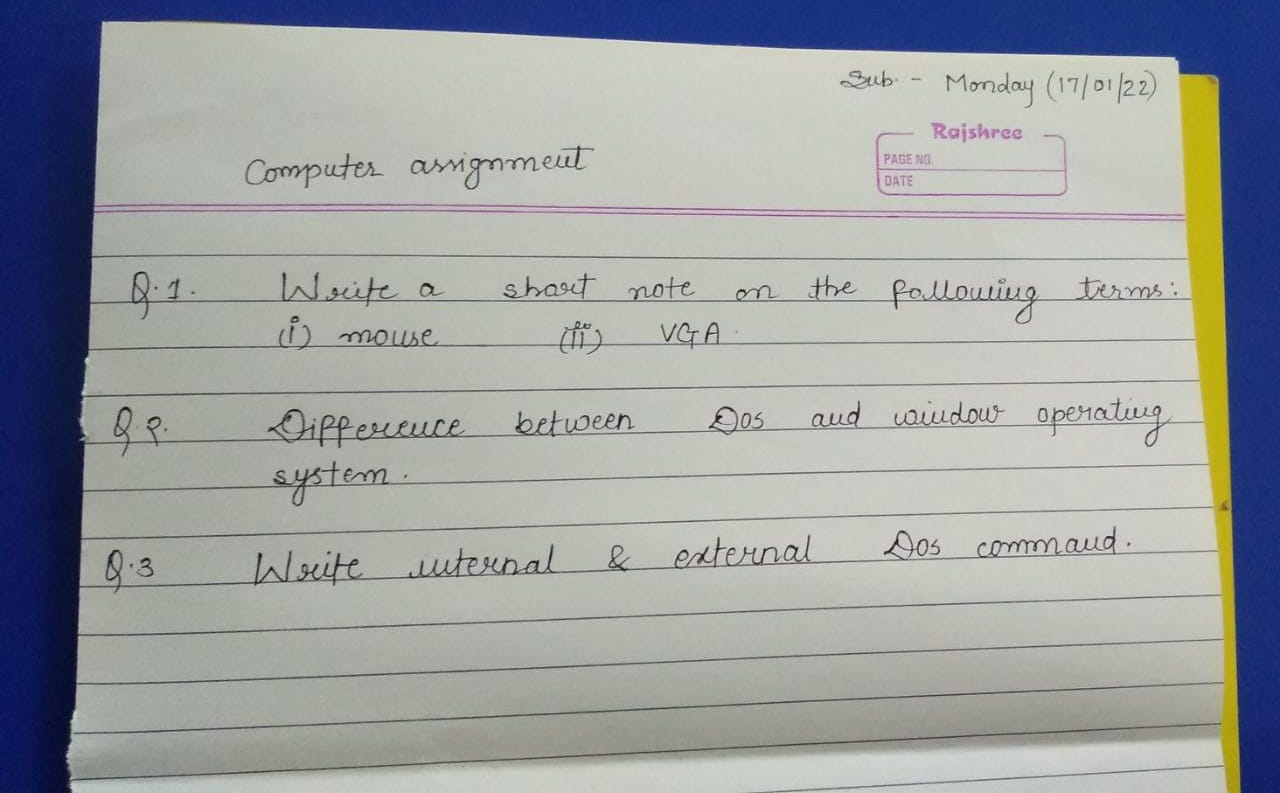 Sub. - Monday (17/01/22)
Rajshree
PAGE NO.
DATE
Computer assignment
Q.1. Write a short note on the following terms:
(i) mouse (ii) VGA.
Q.2. Difference between Dos and window operating
system.
Q.3 Write internal & external Dos command.